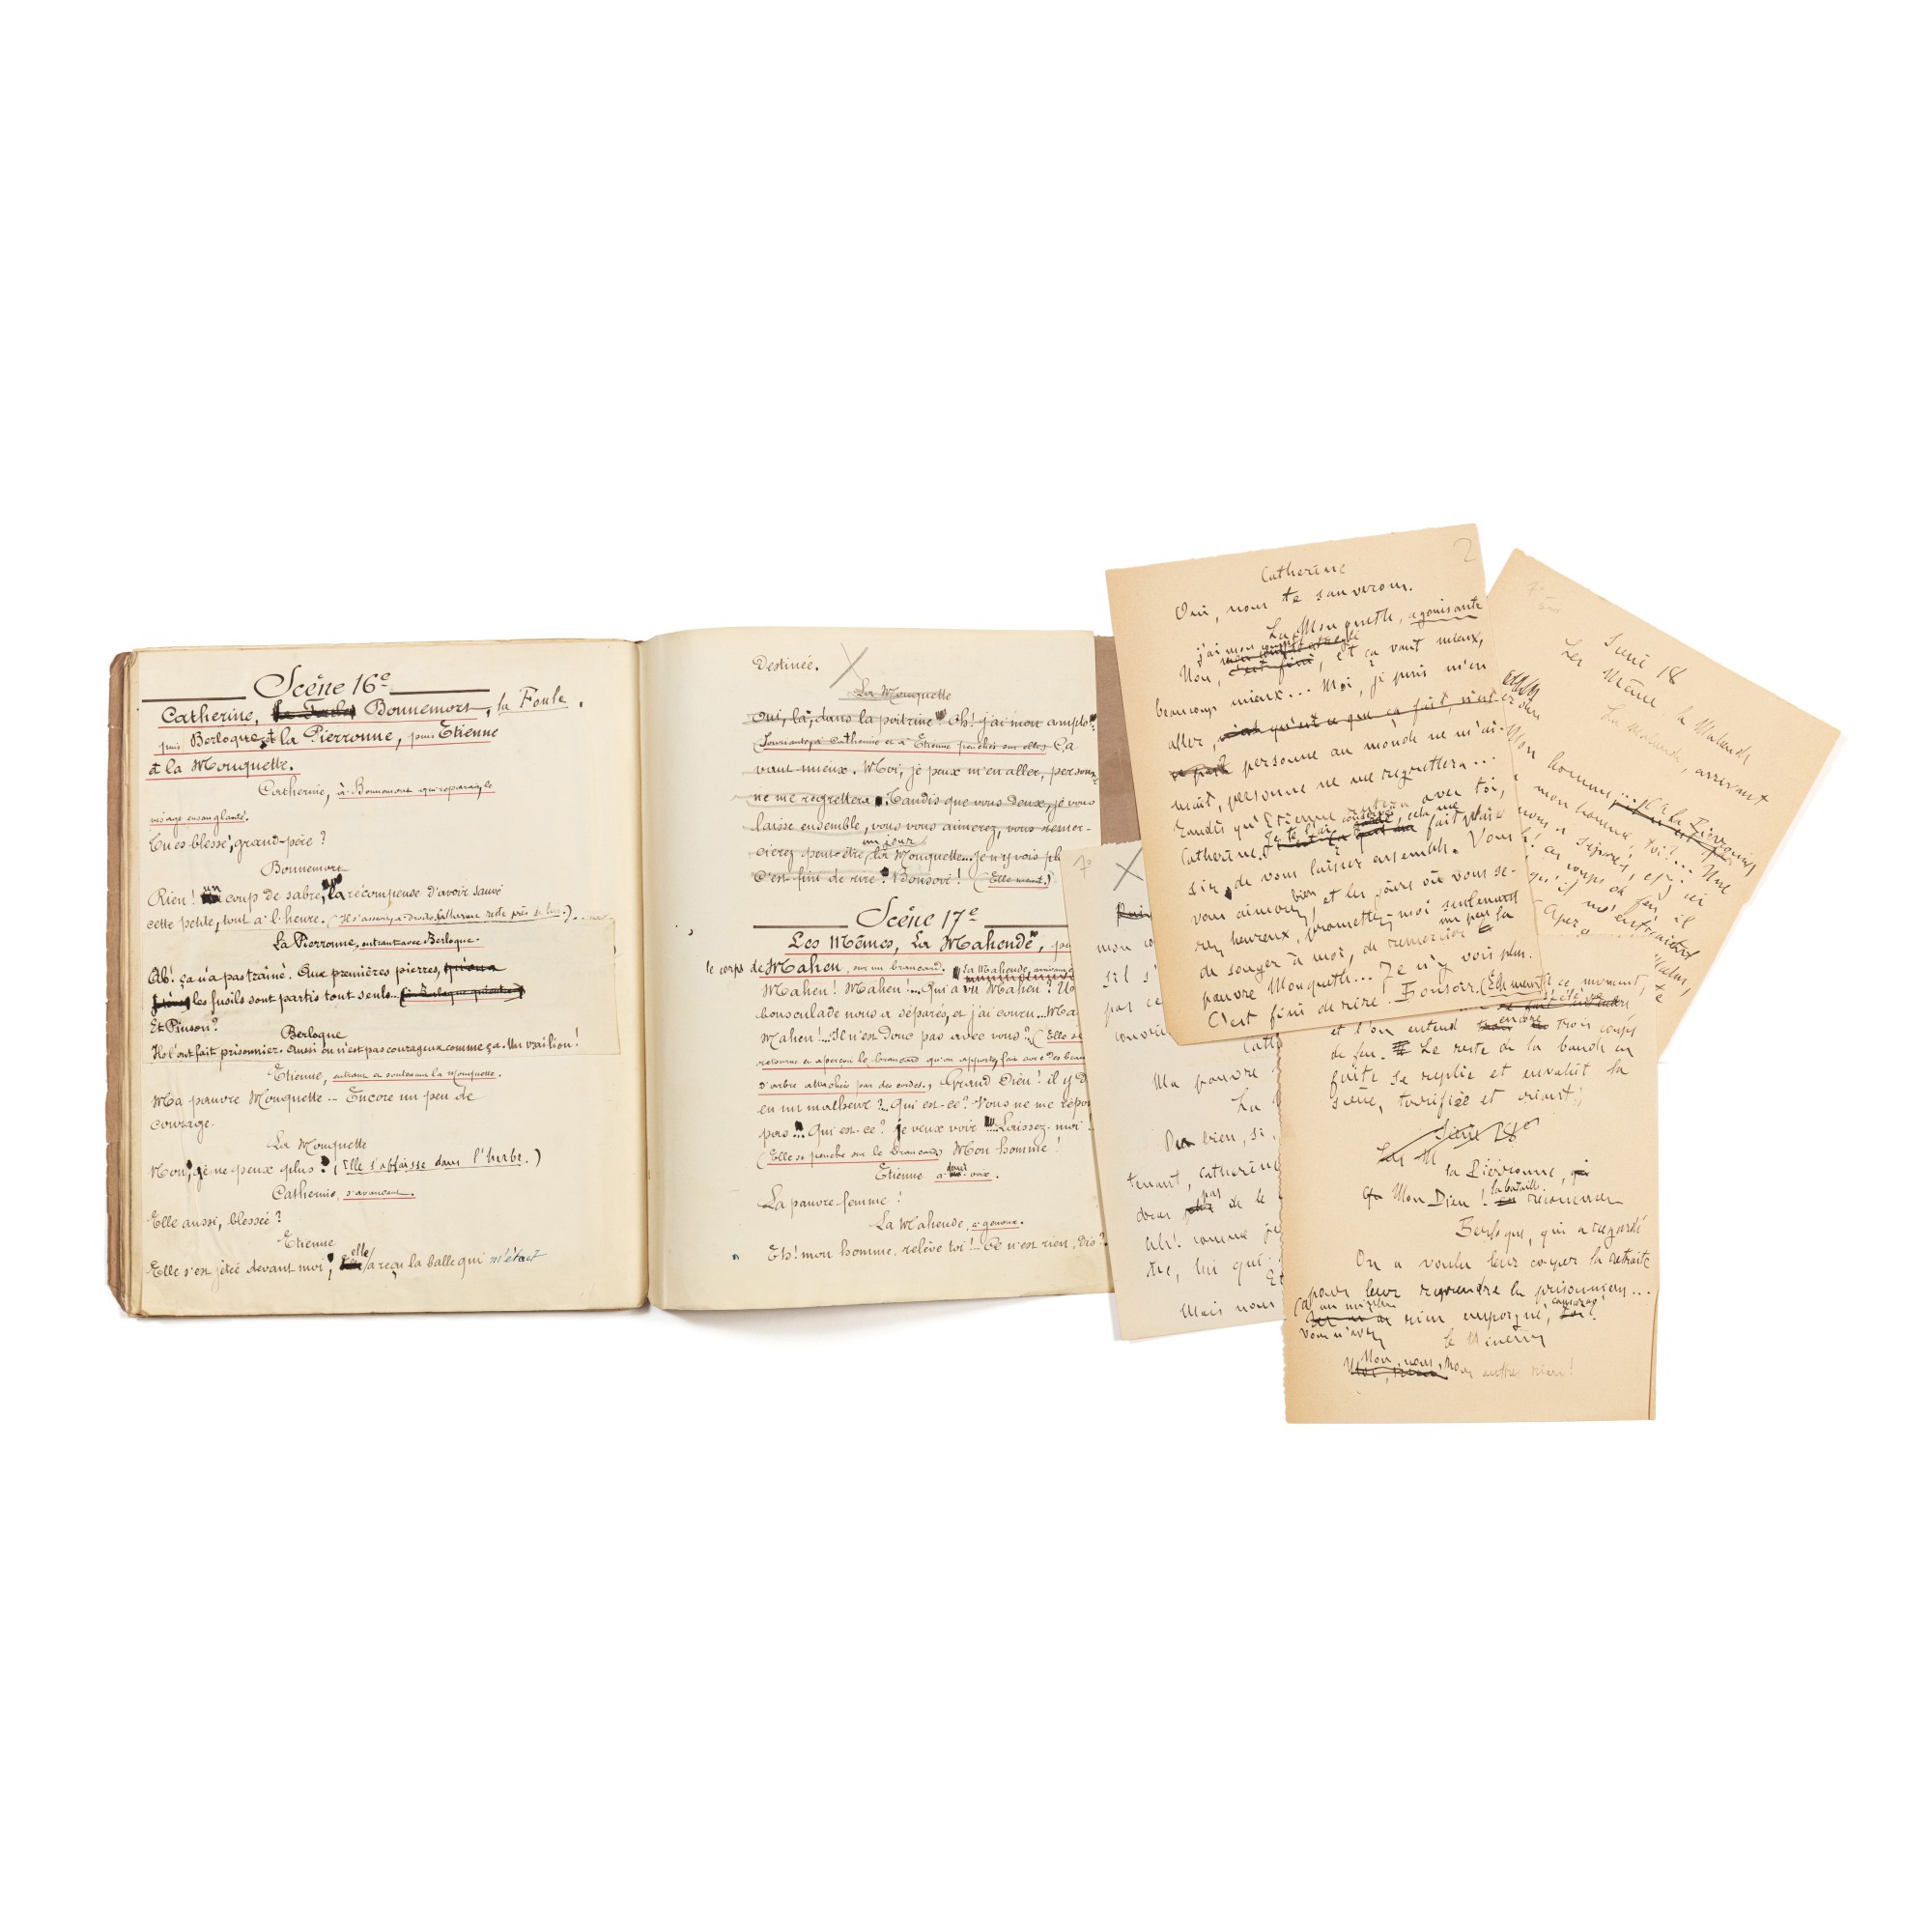 Scène 16e
Catherine, Bonnemort, la Foule.
puis Berloque et la Pierronne, puis Etienne
et la Mouquette.
Catherine, à Bonnemort qui reparaît le
visage ensanglanté.
Tu es blessé, grand-père ?
Bonnemort
Rien ! un coup de sabre, la récompense d'avoir sauvé
cette petite, tout à l'heure. (Il s'assoit à droite, Catherine reste près de lui.)
La Pierronne, entrant avec Berloque.
Ah ! ça n'a pas traîné. Aux premières pierres, qu'on a
les fusils sont partis tout seuls...
Et Pinson ?
Berloque
Ils l'ont fait prisonnier. Aussi on n'est pas courageux comme ça. Un vrai lion !
Etienne, entrant et soutenant la Mouquette.
Ma pauvre Mouquette... Encore un peu de
courage.
La Mouquette
Non, je ne peux plus ! (Elle s'affaisse dans l'herbe.)
Catherine, s'avançant.
Elle aussi, blessée ?
Etienne
Elle s'est jetée devant moi, elle a reçu la balle qui m'était
Destinée.
La Mouquette
Oui, là, dans la poitrine Oh ! j'ai mon compte
(Souriant, à Catherine et à Etienne penchés sur elle) Ça
vaut mieux. Moi, je peux m'en aller, personne
ne me regrettera. Tandis que vous deux, je vous
laisse ensemble, vous vous aimerez, vous remer-
un jour
cierez peut-être la Mouquette... Je n'y vois pl
C'est fini de rire ! Bonsoir ! (Elle meurt.)
Scène 17e
Les Mêmes, La Maheude, pu
le corps de Maheu, sur un brancard. la Maheude, arrivant
Maheu ! Maheu !... Qui a vu Maheu ? Un
bousculade nous a séparés, et j'ai couru... Ma
Maheu !... Il n'est donc pas avec vous ? (Elle se
retourne et aperçoit le brancard qu'on apporte, fait avec des bran
d'arbre attachées par des cordes., Grand Dieu ! il y a
eu un malheur ?... Qui est-ce ? Vous ne me répon
pas Qui est-ce ? je veux voir Laissez-moi !
(Elle se penche sur le brancard) Mon homme !
Etienne à demi voix.
La pauvre femme !
La Maheude, à genoux.
Eh ! mon homme, relève toi !... Ce n'est rien, dis ?
7°
mon co
s'il s'
pas ce
ouvri
Cath
Ma pauvre
La
bien, si
tenant, Catherine
pas de le
Ah ! comme je
tre, lui qui
Et
Mais nous
2
Catherine
Oui, nous te sauverons.
La Mouquette, agonisante
j'ai mon compte
Non, c'est fini, et ça vaut mieux,
beaucoup mieux... Moi, je puis m'en
aller, qu'est ce que ça fait,
personne au monde ne m'ai-
mait, personne ne me regrettera...
Tandis qu'Etienne avec toi,
Catherine. cela me fait plai-
sir, de vous laisser ensemble. Vous
vous aimerez bien, et les jours où vous se-
rez heureux, promettez-moi seulement
de songer à moi, de remercier un peu la
pauvre Mouquette... Je n'y vois plus.
C'est fini de rire. Bonsoir. (Elle meurt.
7°
Scène 18
Les Mêmes, la Maheude
La Maheude, arrivant
Mon homme... la Pierronne
mon homme, toi ?... Une
nous a séparés, et j'
coups de feu, il
qu'il m'entraînait
ce moment,
et l'on entend encore trois coups
de feu. Le reste de la bande en
fuite se replie et envahit la
scène, terrifiée et criant.
Scène 18e
Les M
la Pierronne,
Mon Dieu ! la bataille recommence
Berloque, qui a regardé
On a voulu leur couper la retraite
pour leur reprendre les prisonniers...
(au mineur
Vous n'avez rien empoigné,
le Mineur
Non, nous, Nous autres rien !